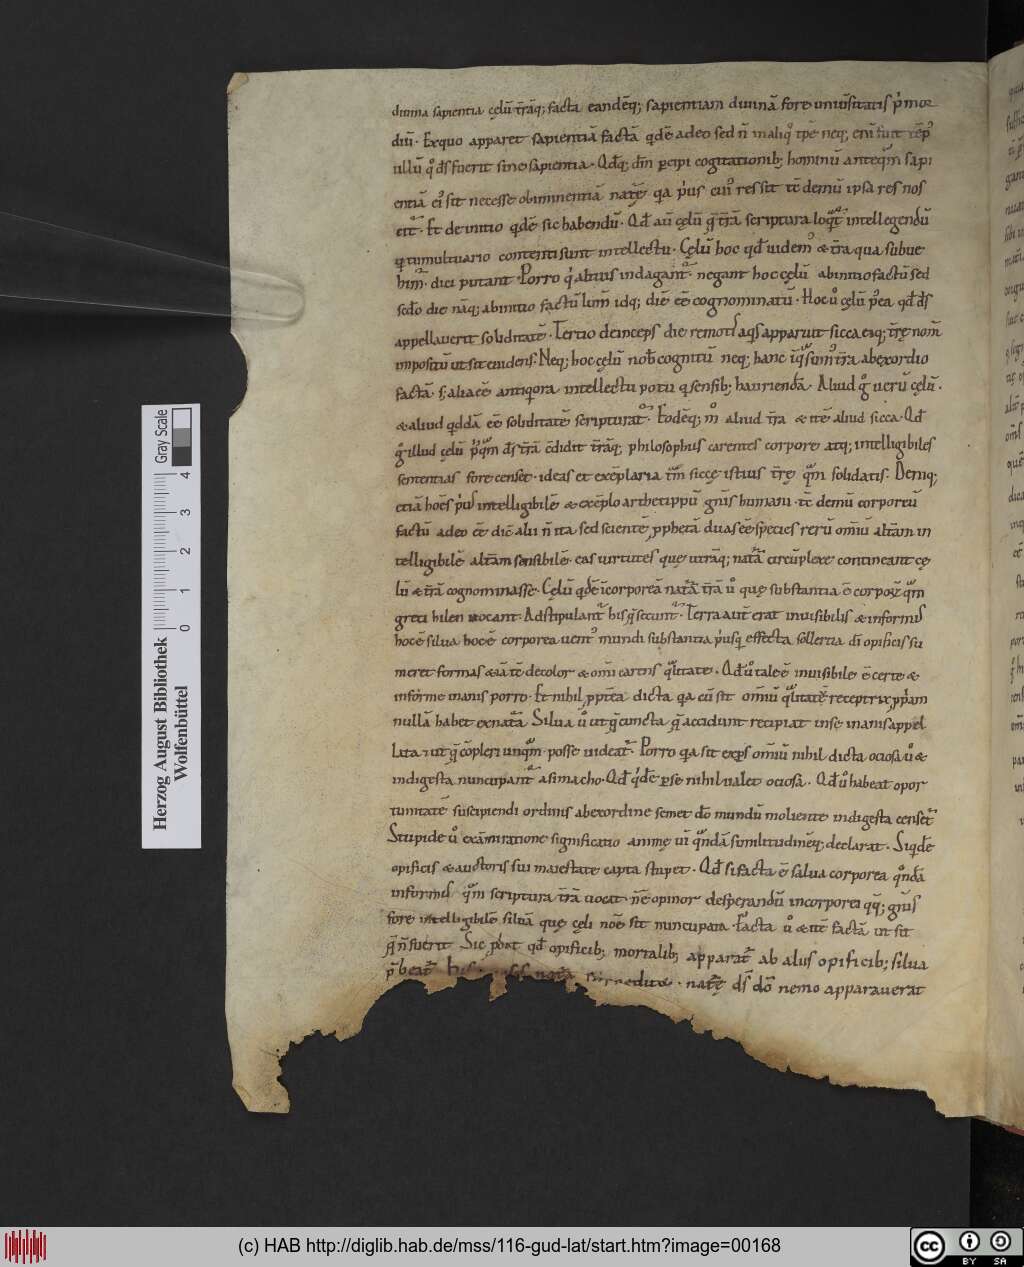 diuina sapientia cęlū t̄rāq; facta eandēq; sapientiam diuinā fore uniuersitatis p'mor
diū. Exquo apparet sapientiā factā qdē adeo sed n̄ inaliq° tp̄e neq; eni fuit tēp'
ullū q° d̄s fuerit sine sapientia. Qd̄q; dm̄ p̱cipi cogitationib; hominū anteq̄m sapi
entiā ei' sit necesse obiminentiā natr̄e qa p'us cui' res sit tc̄ demū ipsa res nos
cit'. Et deinitio qdē sic habendū. Qd̄ aū cęlū q̄ t̄rā scriptura loqt' intellegendū
tumultuario contenti sunt intellectu. Cęlū hoc qd̄ uidem' & t̄ra qua subue
him'. dici putant. Porro q' altius indagant'. negant hoc cęlū abinitio factū sed
scd̄o die nāq; abinitio factū lim̄ idq; diē eē cognominatū. Hoc u° cęlū p'ea qd̄ d̄s
appellauerit soliditatē. Tertio deinceps die remotis aqs apparuit sicca eiq; t̄rę nom̄
impositū ut sit euidens. Neq; hoc cęlū nob̄ cognitū neq; hanc t̄ra abexordio
factā. s; alia eē antiqora intellectu potiu q sensib; hauriendā. Aliud g° uerū cęlū.
& aliud qddā eē soliditatē scripturat'. Eodēq; m° aliud t̄ra & itē aliud sicca. Qd̄
g° illud cęlū d̄s t̄rā c̄didit t̄rāq; philosophus carentes corpore atq; intelligibiles
sententias fore censet. ideas et exēplaria siccę istius t̄rę q̄m solidatis. Deniq;
etiā hoēs p'us intelligibilē & exēplo arthetippū gn̄is humani. tc̄ demū corporeū
factū adeo c̄e dic̄ alii n̄ ita sed scientē p̱phetā duas eē species rerū om̄iū altam in
telligibilē altam sensibilē. eas uirtutes que utrāq; natrā circūplexe contineant cę
lū & t̄rā cognominasse. Cęlū qdē īcorporeā natrā t̄rā u° que substantia ē corporū q̄m
greci hilen uocant. Adstipulant' his q secunt'. Terra aut̄ erat inuisibilis & informis
hoc ē silua hoc ē corporea uenit' mundi substantia p'usq effecta sollertia di opificis su
meret formas & iā tē decolor & om̄i carens q'litate. Qd̄ u° tale ē inuisibile ē certe &
informe inanis porro. Et nihil p̱ptea dicta qa cū sit om̄iū q'litatē receptrix p̱p'am
nullā habet exnatrā. Silua u° ut q cuncta q accidunt recipiat inse inanis appel
lata. ut q cōpleri unq̄m posse uideat'. Porro qa sit exp̱s om̄iū nihil dicta ociosa u° &
indigesta nuncupant' asimacho. Qd̄ q'dē p̱se nihil ualet ociosa. Qd̄ u° habeat opor
tunitatē suscipiendi ordinis abexordine semet do mundū moliente indigesta censet'
Stupide u° exāmiratione significatio anime ui' q'ndā similitudinēq; declarat. Siqdē
opificis & auctoris sui maiestate capta stupet. Qd̄ si facta ē salua corporea q'ndā
informis q̄m scriptura t̄rā uocat n̄ e opinor desperandū incorporei qq; gn̄is
fore intelligibilē siluā que cęli noē sit nuncupata. Facta u° & itē factā ut sit
q n̄ fuerit Sic p̱bat qd̄ opificib; mortalib; apparat' ab aliis opificib; silua
p̱beat' his natrā natrę ds do nemo apparauerat
Herzog August Bibliothek
Wolfenbüttel
0 1 2 3 4
Gray Scale
(c) HAB http://diglib.hab.de/mss/116-gud-lat/start.htm?image=00168
cc BY SA